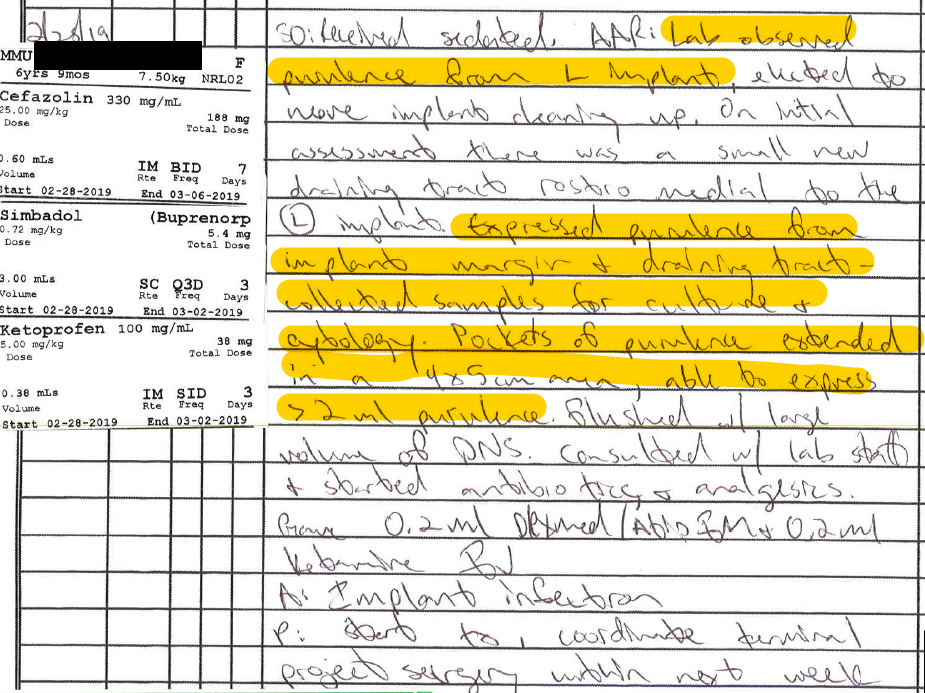 2/28/19
MMU
F
6yrs 9mos 7.50kg NRL02
Cefazolin 330 mg/mL
25.00 mg/kg 188 mg
Dose Total Dose
0.60 mLs IM BID 7
Volume Rte Freq Days
Start 02-28-2019 End 03-06-2019
Simbadol (Buprenorp
0.72 mg/kg 5.4 mg
Dose Total Dose
3.00 mLs SC Q3D 3
Volume Rte Freq Days
Start 02-28-2019 End 03-02-2019
Ketoprofen 100 mg/mL
5.00 mg/kg 38 mg
Dose Total Dose
0.38 mLs IM SID 3
Volume Rte Freq Days
Start 02-28-2019 End 03-02-2019
SO: received sedated. Lab observed
purulence from L implant, elected to
move implant cleaning up. On initial
assessment there was a small new
draining tract rostro medial to the
(L) implant. Expressed purulence from
implant margin + draining tract -
collected samples for culture +
cytology. Pockets of purulence extended
in a 4x5cm area, able to express
>2 ml purulence. Flushed w/ large
volume of DNS. Consulted w/ lab staff
+ started antibiotics + analgesics.
Gave 0.2 ml IM + 0.2 ml
Ketamine
A: Implant infection
P: Start tx, coordinate terminal
project surgery within next week